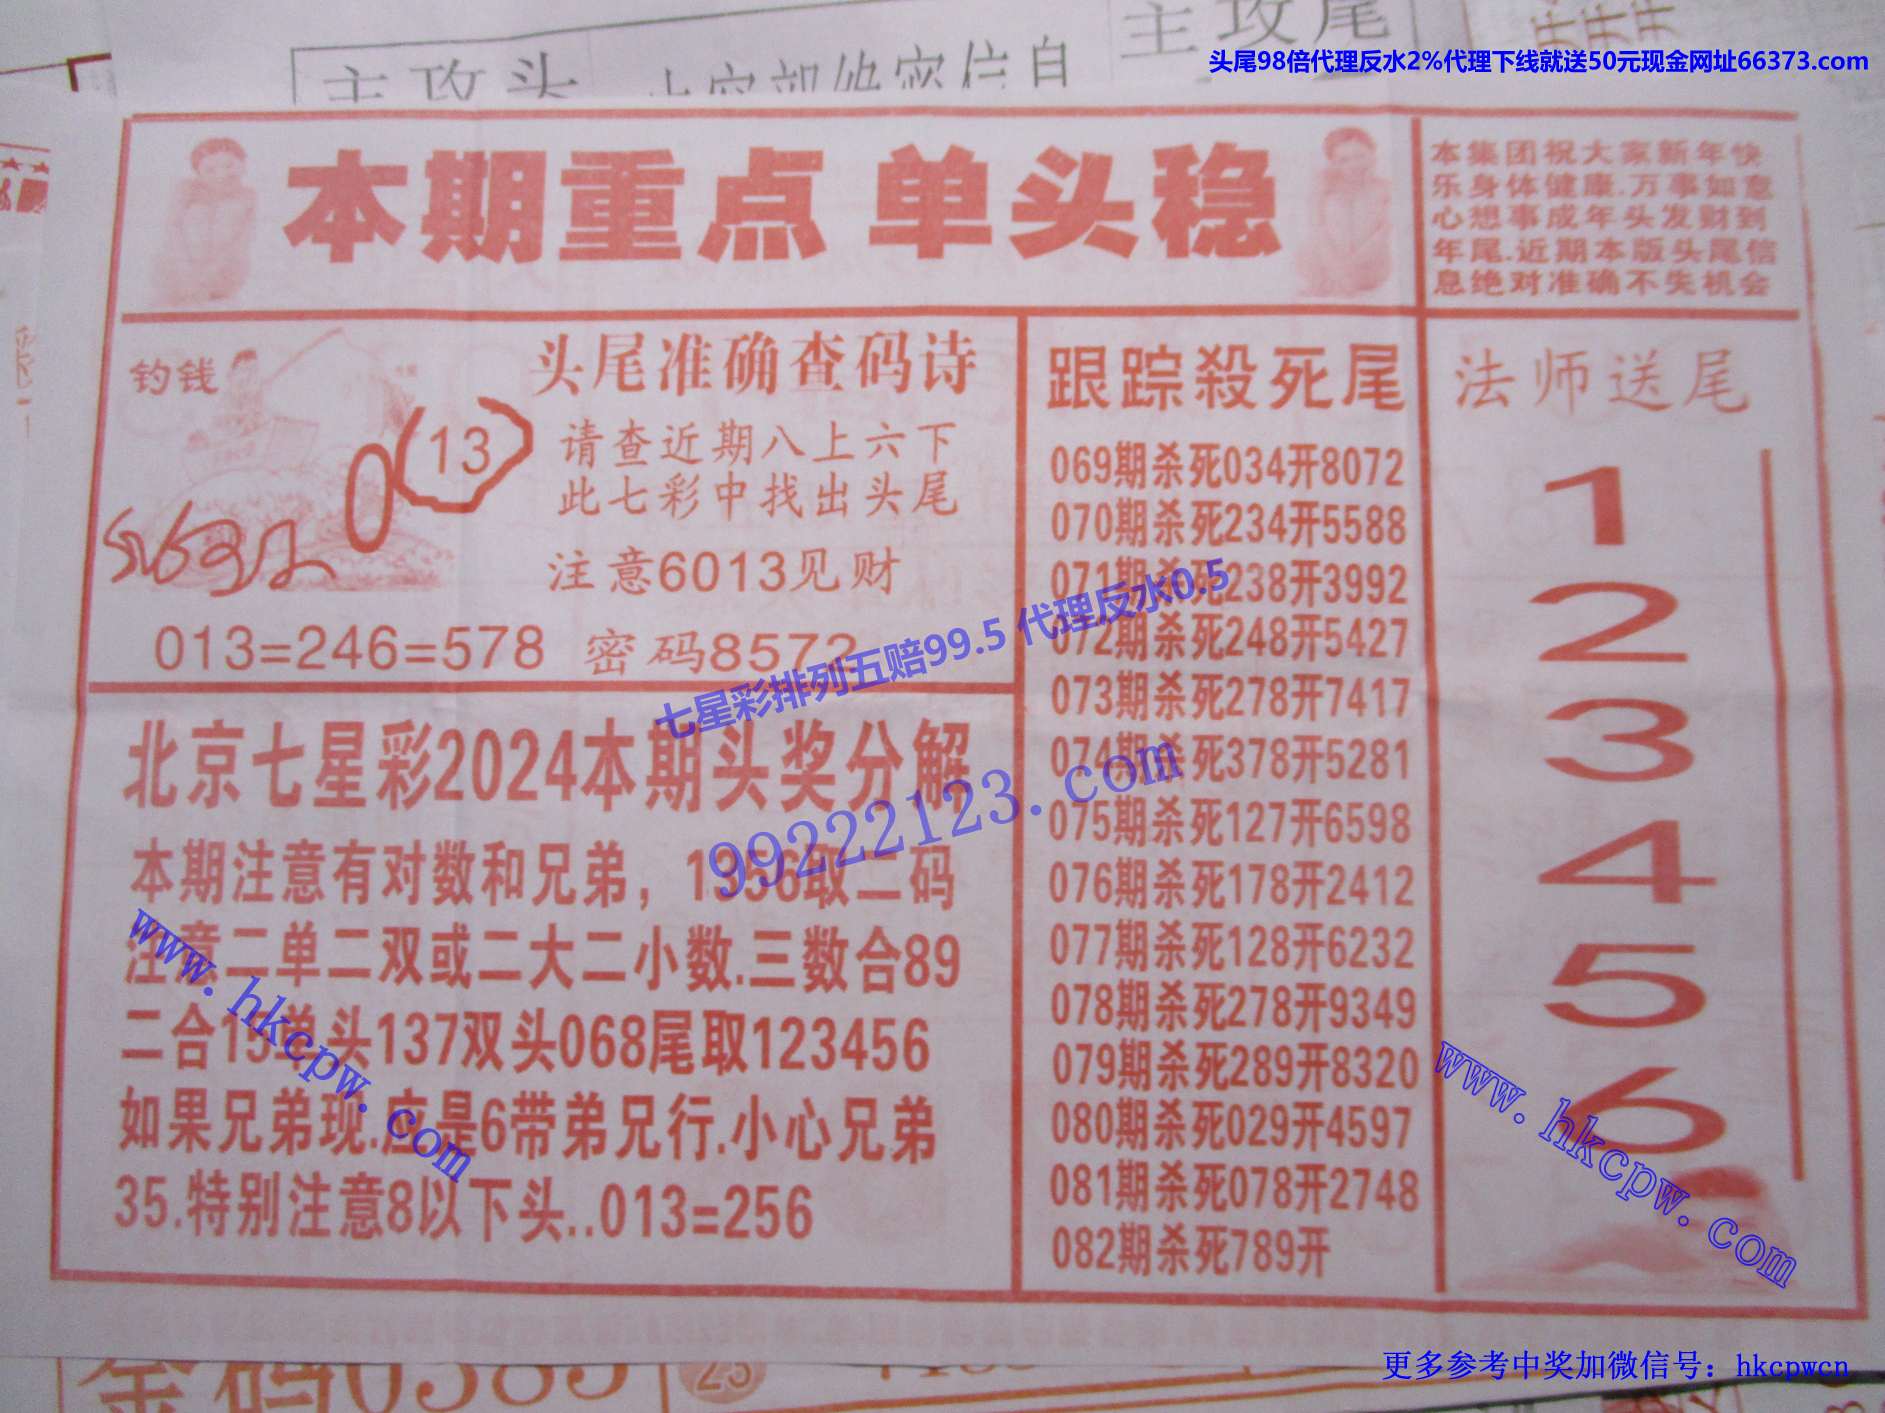 主攻头
主攻尾
头尾98倍代理反水2%代理下线就送50元现金网址66373.com
本期重点 单头稳
本集团祝大家新年快
乐身体健康.万事如意
心想事成年头发财到
年尾.近期本版头尾信
息绝对准确不失机会
钓钱
0
13
头尾准确查码诗
请查近期八上六下
此七彩中找出头尾
注意6013见财
013=246=578 密码8572
北京七星彩2024本期头奖分解
本期注意有对数和兄弟，1356取二码
注意二单二双或二大二小数.三数合89
二合15单头137双头068尾取123456
如果兄弟现.应是6带弟兄行.小心兄弟
35.特别注意8以下头..013=256
跟踪殺死尾
069期杀死034开8072
070期杀死234开5588
071期杀死238开3992
072期杀死248开5427
073期杀死278开7417
074期杀死378开5281
075期杀死127开6598
076期杀死178开2412
077期杀死128开6232
078期杀死278开9349
079期杀死289开8320
080期杀死029开4597
081期杀死078开2748
082期杀死789开
法师送尾
1
2
3
4
5
6
七星彩排列五赔99.5 代理反水0.5
99222123.com
www.hkcpw.com
www.hkcpw.com
金码0385
23
更多参考中奖加微信号：hkcpwcn